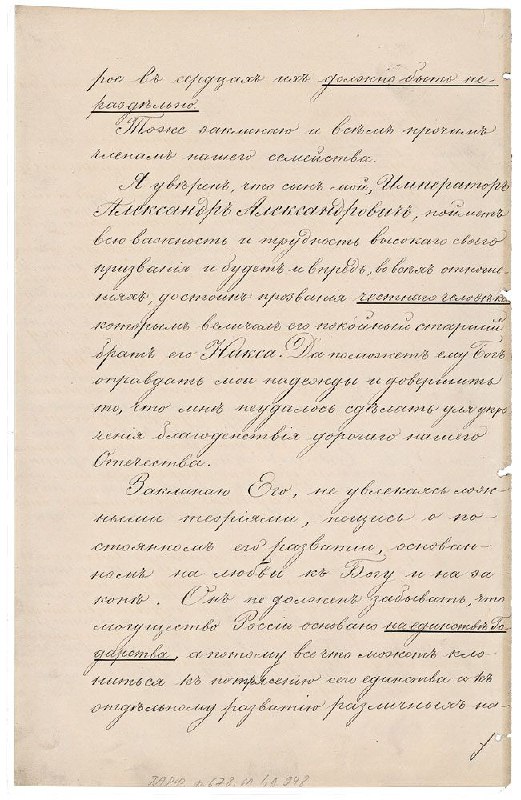 рое въ сердцахъ ихъ должно быть не-
раздѣльно.
Тоже заклинаю и всѣмъ прочимъ
членамъ нашего семейства.
Я увѣренъ, что сынъ мой, Императоръ
Александръ Александровичъ, пойметъ
всю важность и трудность высокаго своего
призванія и будетъ и впредь, во всѣхъ отноше-
ніяхъ, достоинъ прозванія честнаго человѣка
которымъ величалъ его покойный старшій
братъ его Никса. Да поможетъ ему Богъ
оправдать мои надежды и довершить
то, что мнѣ неудалось сдѣлать для упро-
ченія благоденствія дорогаго нашего
Отечества.
Заклинаю Его, не увлекаясь мод-
ными теоріями, пещись о по-
стоянномъ его развитіи, основан-
номъ на любви къ Богу и на за
конѣ. Онъ не долженъ забывать, что
могущество Россіи основано на единствѣ Го-
дарства, а потому все что можетъ кло-
ниться къ потрясенію сего единства и къ
отдѣльному развитію различныхъ на-